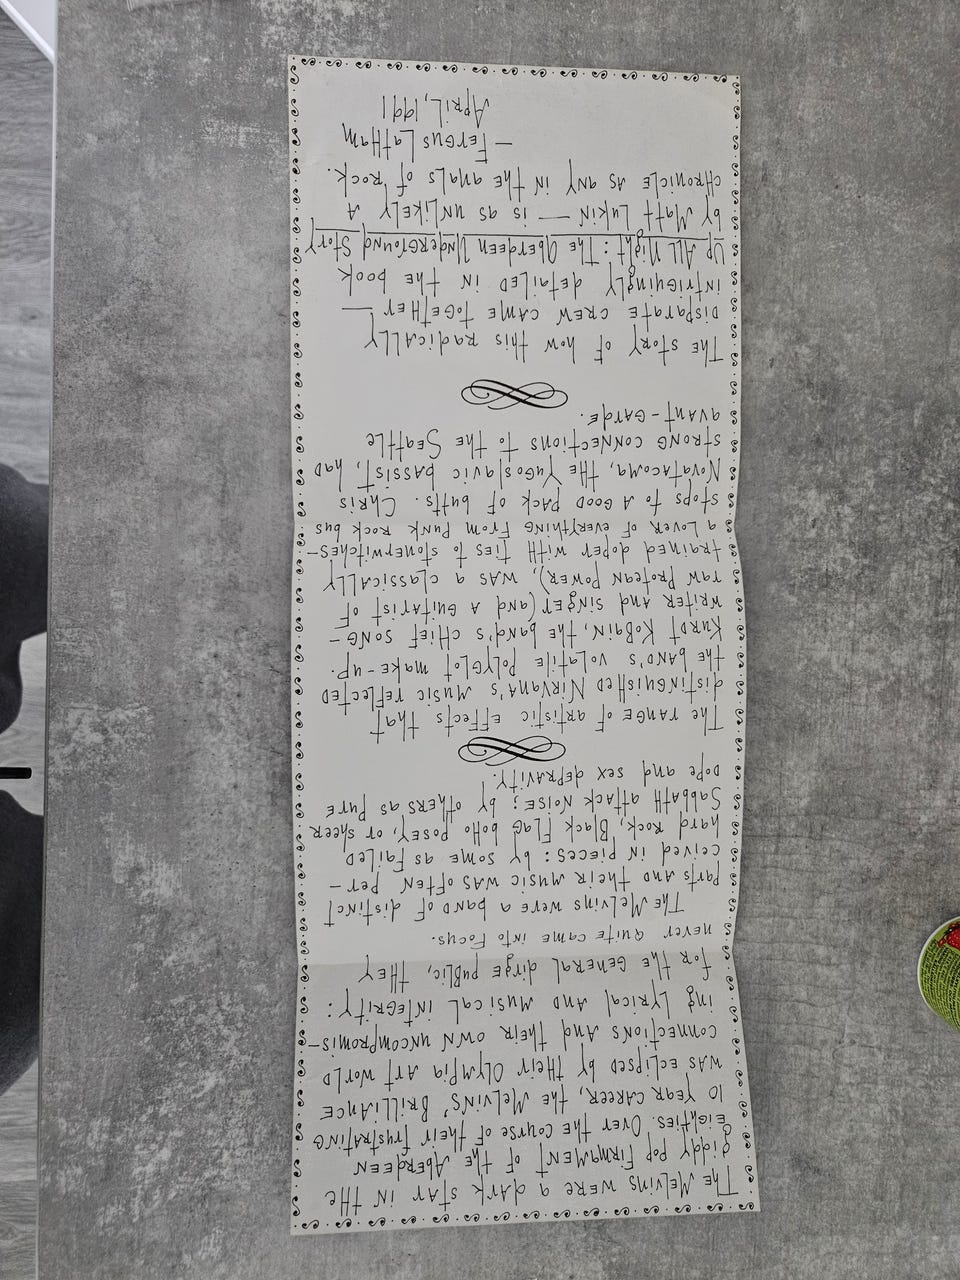 The Melvins were a dark star in the
giddy pop firmament of the Aberdeen
Eighties. Over the course of their frustrating
10 year career, the Melvins' brilliance
was eclipsed by their Olympia art world
connections and their own uncompromis-
ing lyrical and musical integrity:
for the general dirge public, they
never quite came into focus.
The Melvins were a band of distinct
parts and their music was often per-
ceived in pieces: by some as failed
hard rock, Black Flag boho posey, or sheer
Sabbath attack noise; by others as pure
dope and sex depravity.
The range of artistic effects that
distinguished Nirvana's music reflected
the band's volatile polyglot make-up.
Kurdt Kobain, the band's chief song-
writer and singer (and a guitarist of
raw protean power), was a classically
trained doper with ties to stonerwitches-
a lover of everything from punk rock bus
stops to a good pack of butts. Chris
Novatacoma, the Yugoslavic bassist, had
strong connections to the Seattle
avant-garde.
The story of how this radically
disparate crew came together —
intriguingly detailed in the book
Up All Night: The Aberdeen Underground Story
by Matt Lukin — is as unlikely a
chronicle as any in the anals of rock.
— Fergus Latham
April, 1991